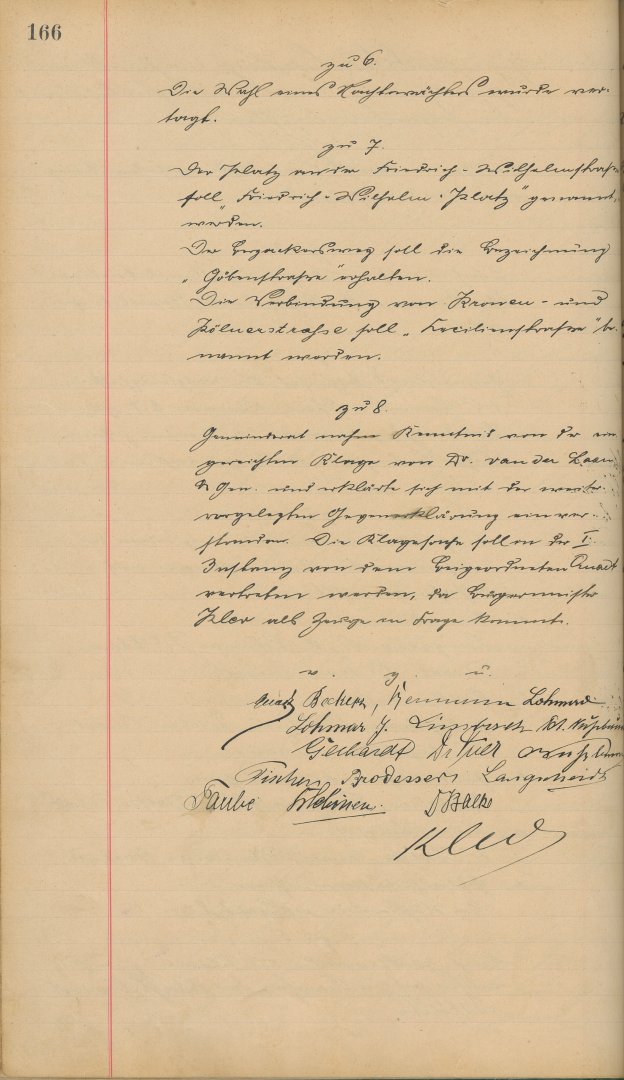 166
zu 6.
Die Wahl eines Nachtwächters wurde ver-
tagt.
zu 7.
Der Platz an der Friedrich-Wilhelmstraße
soll „Friedrich-Wilhelm-Platz" genannt
werden.
Der soll die Bezeichnung
„Göbenstraße" erhalten.
Die Verbindung von Kronen- und
Kölnerstraße soll „Cecilienstraße" be-
nannt werden.
zu 8.
Gemeinderat nahm Kenntnis von der ein
gereichten Klage von Dr. van der Laan
& Gen. und erklärte sich mit der
vorgelegten Gegenerklärung einver-
standen. Die Klagesache soll in der I.
Instanz von dem Beigeordneten Quadt
vertreten werden, da Bürgermeister
Klev als Zeuge in Frage kommt.
v. g. u.
Quadt Becker, Lohmar
Lohmar J.
Gerhardt
Fischer Brodesser Langeheid
Taube Dr Balke